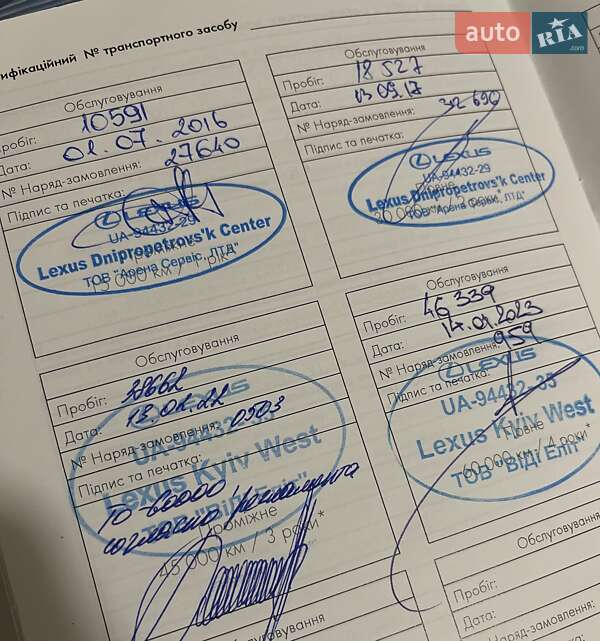 ифікаційний № транспортного засобу
auto RIA.com
Обслуговування
Пробіг: 10591
Дата: 01.07.2016
№ Наряд-замовлення: 27640
Підпис та печатка:
LEXUS
UA-94432-29
Lexus Dnipropetrovs'k Center
ТОВ "Арена Сервіс, ЛТД"
15 000 км / 1 рік*
Обслуговування
Пробіг: 18 527
Дата: 03.09.17
№ Наряд-замовлення: 312 690
Підпис та печатка:
LEXUS
UA-94432-29
Повне
Lexus Dnipropetrovs'k Center
30 000 км / 2 роки*
ТОВ "Арена Сервіс, ЛТД"
Обслуговування
Пробіг: 38662
Дата: 13.02.22
№ Наряд-замовлення: 0503
Підпис та печатка:
UA-94432-35
Lexus Kyiv West
ТО 60000
ТОВ "ВІДІ Еліт"
согласно регламента
Проміжне
45 000 км / 3 роки*
Обслуговування
Пробіг: 46 339
Дата: 14.01.2023
№ Наряд-замовлення: 959
Підпис та печатка:
LEXUS
UA-94432-35
Lexus Kyiv West
Повне
60 000 км / 4 роки*
ТОВ "ВІДІ Еліт"
Обслуговування
Пробіг:
Дата:
№ Наряд-замовлення:
Підпис та
Обслуговування